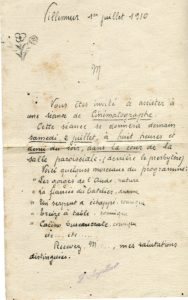 Villemur 1er juillet 1910
M
Vous êtes invité à assister à
une séance de Cinématographe
Cette séance se donnera demain
samedi 2 juillet, à huit heures et
demi du soir, dans la cour de la
salle paroissiale (derrière le presbytère)
Voici quelques morceaux du programme:
Les gorges de l'Aude, nature
La fiancée du batelier, drame
Un serpent à sonnette, comique
comique
comique
etc ... etc ...
Recevez M..., mes salutations
distinguées.